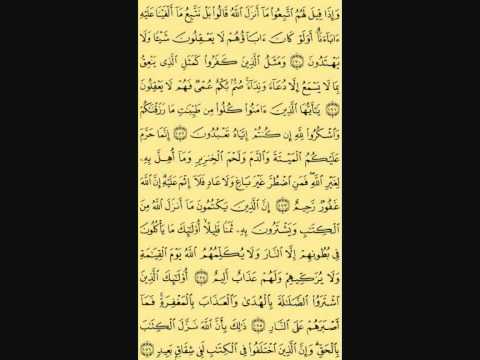 وَإِذَا قِيلَ لَهُمُ اتَّبِعُوا مَا أَنزَلَ اللَّهُ قَالُوا بَلْ نَتَّبِعُ مَا أَلْفَيْنَا عَلَيْهِ
ءَابَاءَنَا أَوَلَوْ كَانَ ءَابَاؤُهُمْ لَا يَعْقِلُونَ شَيْئًا وَلَا
يَهْتَدُونَ ١٧٠ وَمَثَلُ الَّذِينَ كَفَرُوا كَمَثَلِ الَّذِى يَنْعِقُ
بِمَا لَا يَسْمَعُ إِلَّا دُعَاءً وَنِدَاءً صُمٌّ بُكْمٌ عُمْىٌ فَهُمْ لَا يَعْقِلُونَ
١٧١ يَٰأَيُّهَا الَّذِينَ ءَامَنُوا كُلُوا مِن طَيِّبَٰتِ مَا رَزَقْنَٰكُمْ
وَاشْكُرُوا لِلَّهِ إِن كُنتُمْ إِيَّاهُ تَعْبُدُونَ ١٧٢ إِنَّمَا حَرَّمَ
عَلَيْكُمُ الْمَيْتَةَ وَالدَّمَ وَلَحْمَ الْخِنزِيرِ وَمَا أُهِلَّ بِهِ
لِغَيْرِ اللَّهِ فَمَنِ اضْطُرَّ غَيْرَ بَاغٍ وَلَا عَادٍ فَلَا إِثْمَ عَلَيْهِ إِنَّ اللَّهَ
غَفُورٌ رَّحِيمٌ ١٧٣ إِنَّ الَّذِينَ يَكْتُمُونَ مَا أَنزَلَ اللَّهُ مِنَ
الْكِتَٰبِ وَيَشْتَرُونَ بِهِ ثَمَنًا قَلِيلًا أُولَٰئِكَ مَا يَأْكُلُونَ
فِى بُطُونِهِمْ إِلَّا النَّارَ وَلَا يُكَلِّمُهُمُ اللَّهُ يَوْمَ الْقِيَٰمَةِ
وَلَا يُزَكِّيهِمْ وَلَهُمْ عَذَابٌ أَلِيمٌ ١٧٤ أُولَٰئِكَ الَّذِينَ
اشْتَرَوُا الضَّلَٰلَةَ بِالْهُدَىٰ وَالْعَذَابَ بِالْمَغْفِرَةِ فَمَا
أَصْبَرَهُمْ عَلَى النَّارِ ١٧٥ ذَٰلِكَ بِأَنَّ اللَّهَ نَزَّلَ الْكِتَٰبَ
بِالْحَقِّ وَإِنَّ الَّذِينَ اخْتَلَفُوا فِى الْكِتَٰبِ لَفِى شِقَاقٍ بَعِيدٍ ١٧٦